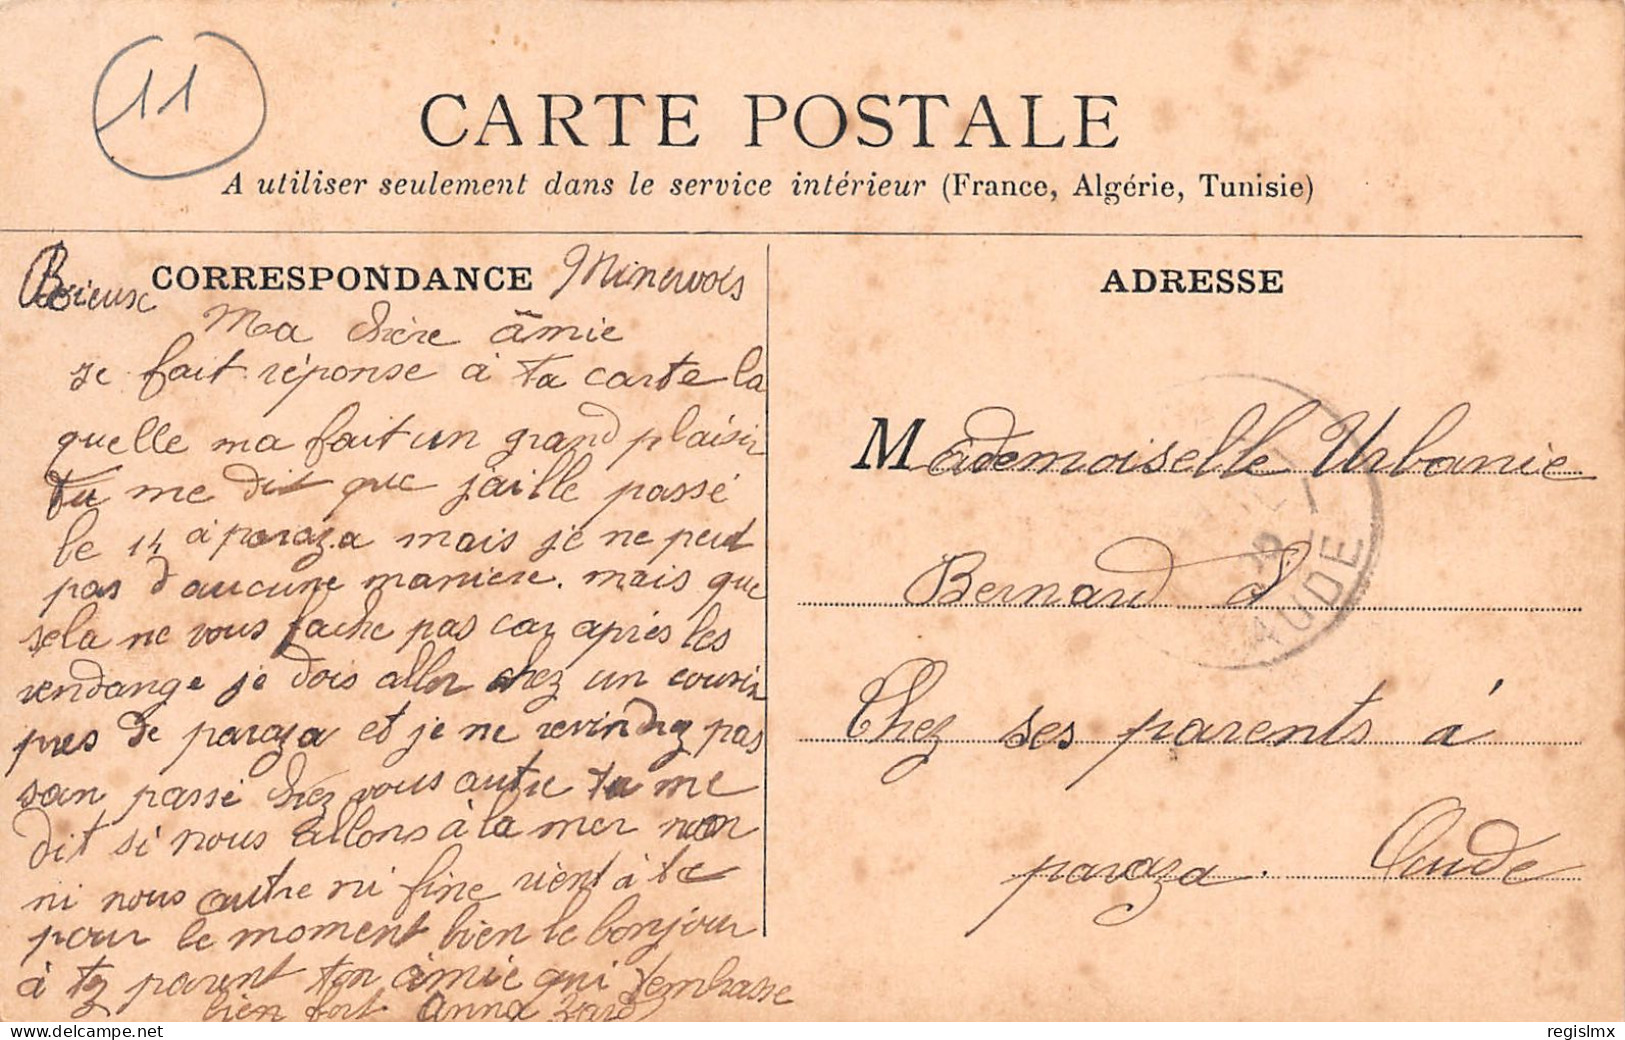 11
CARTE POSTALE
A utiliser seulement dans le service intérieur (France, Algérie, Tunisie)
CORRESPONDANCE
Minervois
Ma chère âmie
je fait réponse à ta carte la
quelle ma fait un grand plaisir
tu me dit que jaille passé
le 14 à paraza mais je ne peut
pas d'aucune maniere. mais que
sela ne vous fache pas car après les
vendange je dois aller chez un cousin
pres de paraza et je ne revindrez pas
san passé chez vous autre tu me
dit si nous allons à la mer non
ni nous autre ni fine rient à te
pour le moment bien le bonjour
à tez parent ton âmie qui t'embrasse
bien fort Anna
ADRESSE
Mademoiselle Urbanie
Bernard
Chez ses parents à
paraza. Aude
AUDE
delcampe.net
regislmx